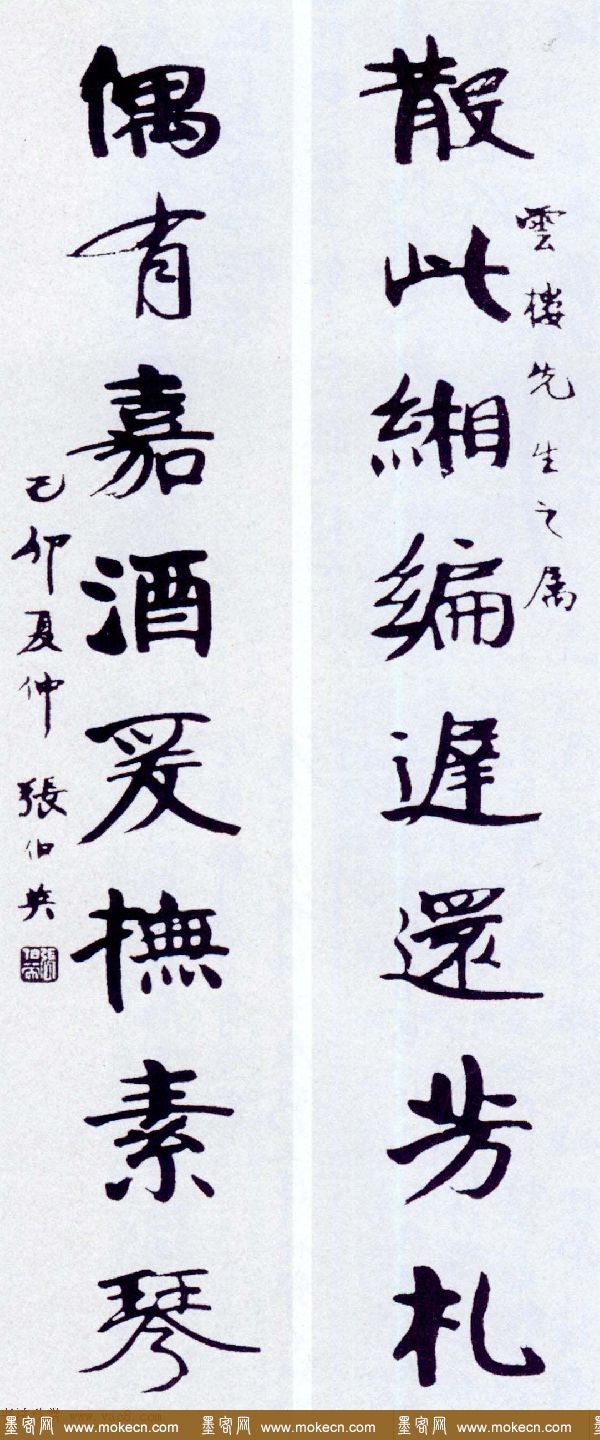 散此緗編遲還芳札
雲樓先生之属
偶有嘉酒爰撫素琴
己卯夏仲 張伯英
張伯英
墨客网 www.mokecn.com 墨客网 www.mokecn.com 墨客网 www.mokecn.com